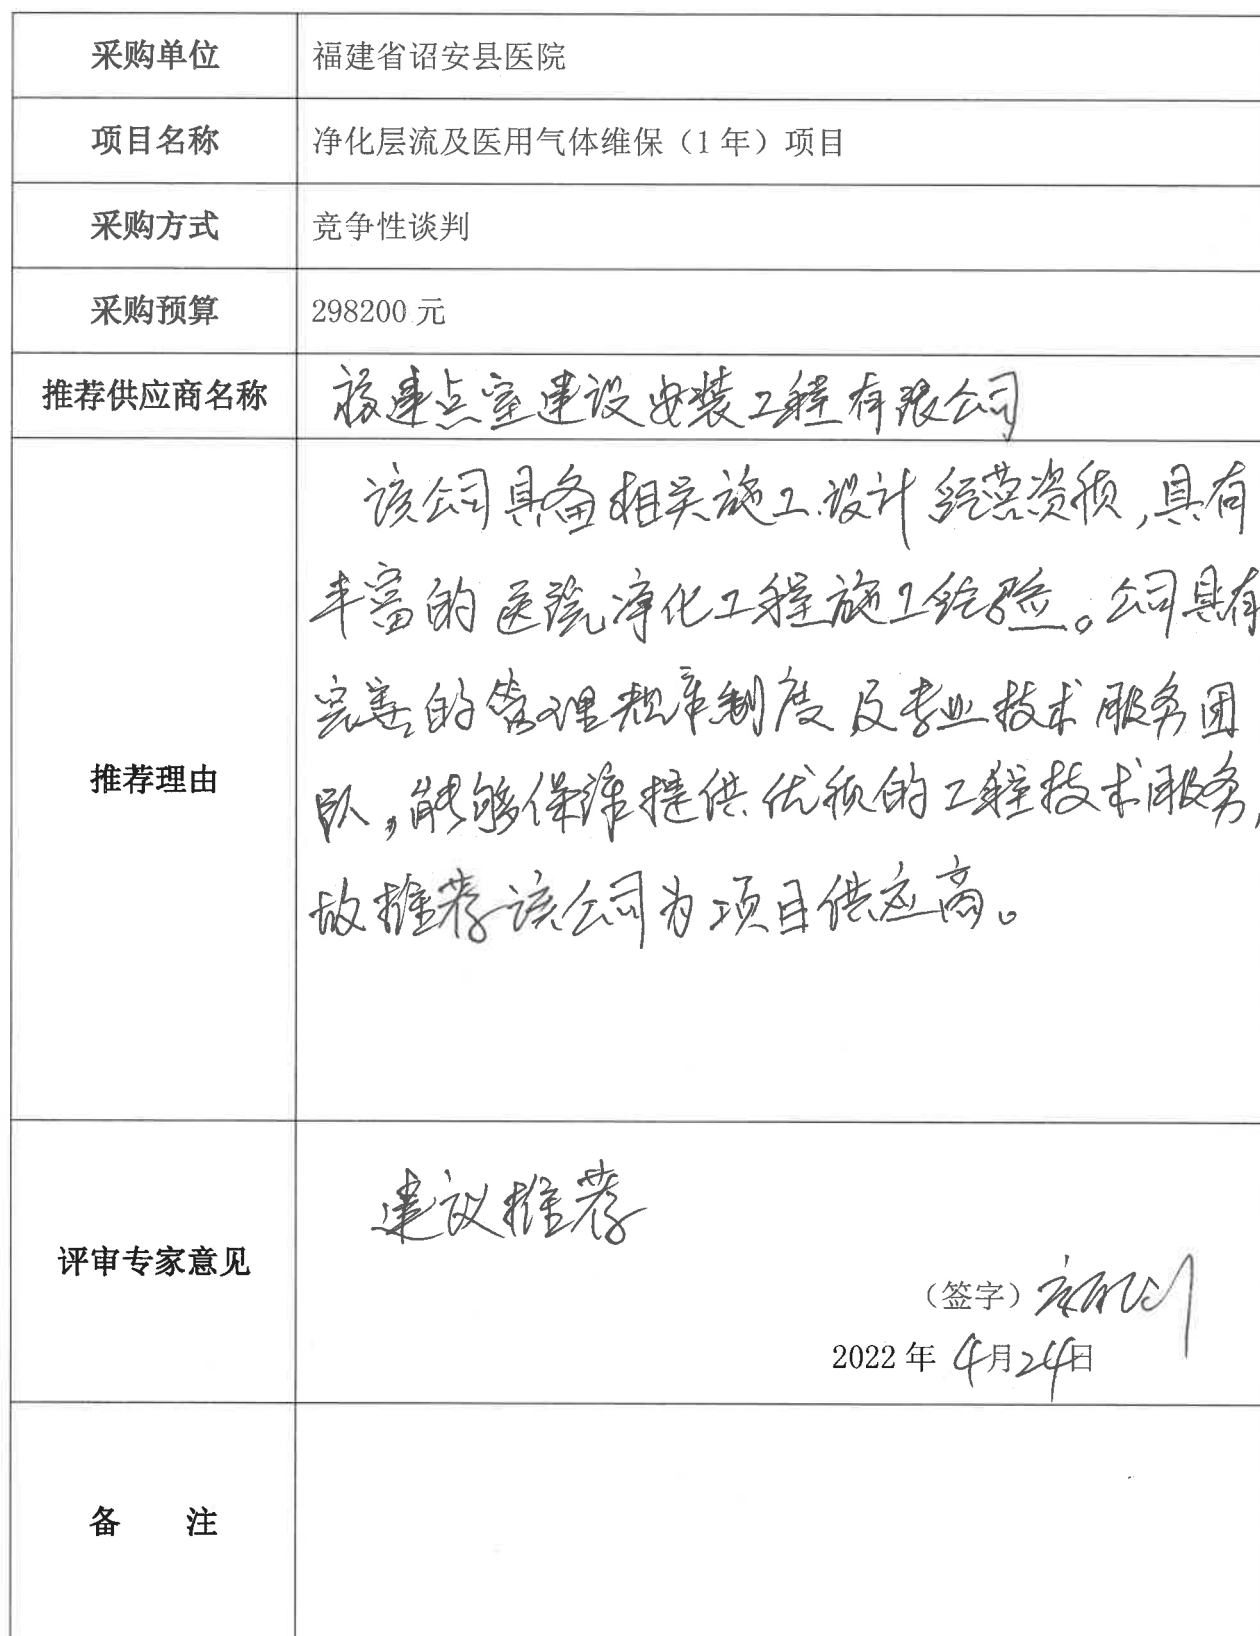 采购单位 福建省诏安县医院
项目名称 净化层流及医用气体维保（1年）项目
采购方式 竞争性谈判
采购预算 298200元
推荐供应商名称 福建点室建设安装工程有限公司
该公司具备相关施工设计经营资质,具有
丰富的医院净化工程施工经验。公司具有
完善的管理规章制度及专业技术服务团
推荐理由
队,能够保证提供优质的工程技术服务,
故推荐该公司为项目供应商。
建议推荐
评审专家意见
（签字）
2022年4月24日
备 注